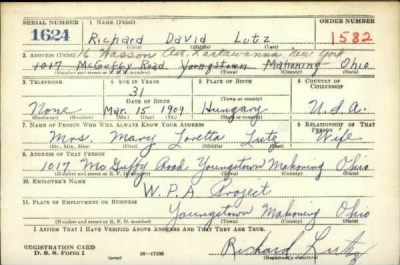 SERIAL NUMBER 1. NAME (Print) ORDER NUMBER
1624 Richard David Lutz 1582
(First) (Middle) (Last)
16 Wasson Ave. Lackawanna New York
2. ADDRESS (Print)
1017 McGuffy Road Youngstown Mahoning Ohio
(Number and street or R. F. D. number) (Town) (County) (State)
3. TELEPHONE 4. AGE IN YEARS 5. PLACE OF BIRTH 6. COUNTRY OF CITIZENSHIP
31
DATE OF BIRTH (Town or county)
None Mar. 15 1909 Hungary U.S.A.
(Exchange) (Number) (Mo.) (Day) (Yr.) (State or country)
7. NAME OF PERSON WHO WILL ALWAYS KNOW YOUR ADDRESS 8. RELATIONSHIP OF THAT PERSON
Mrs. Mary Loretta Lutz Wife
(Mr., Mrs., Miss) (First) (Middle) (Last)
9. ADDRESS OF THAT PERSON
1017 McGuffy Road Youngstown Mahoning Ohio
(Number and street or R. F. D. number) (Town) (County) (State)
10. EMPLOYER'S NAME
W.P.A. Project
11. PLACE OF EMPLOYMENT OR BUSINESS
Youngstown Mahoning Ohio
(Number and street or R. F. D. number) (Town) (County) (State)
I AFFIRM THAT I HAVE VERIFIED ABOVE ANSWERS AND THAT THEY ARE TRUE.
REGISTRATION CARD
D. S. S. Form 1 (over) Richard Lutz
(Registrant's signature)